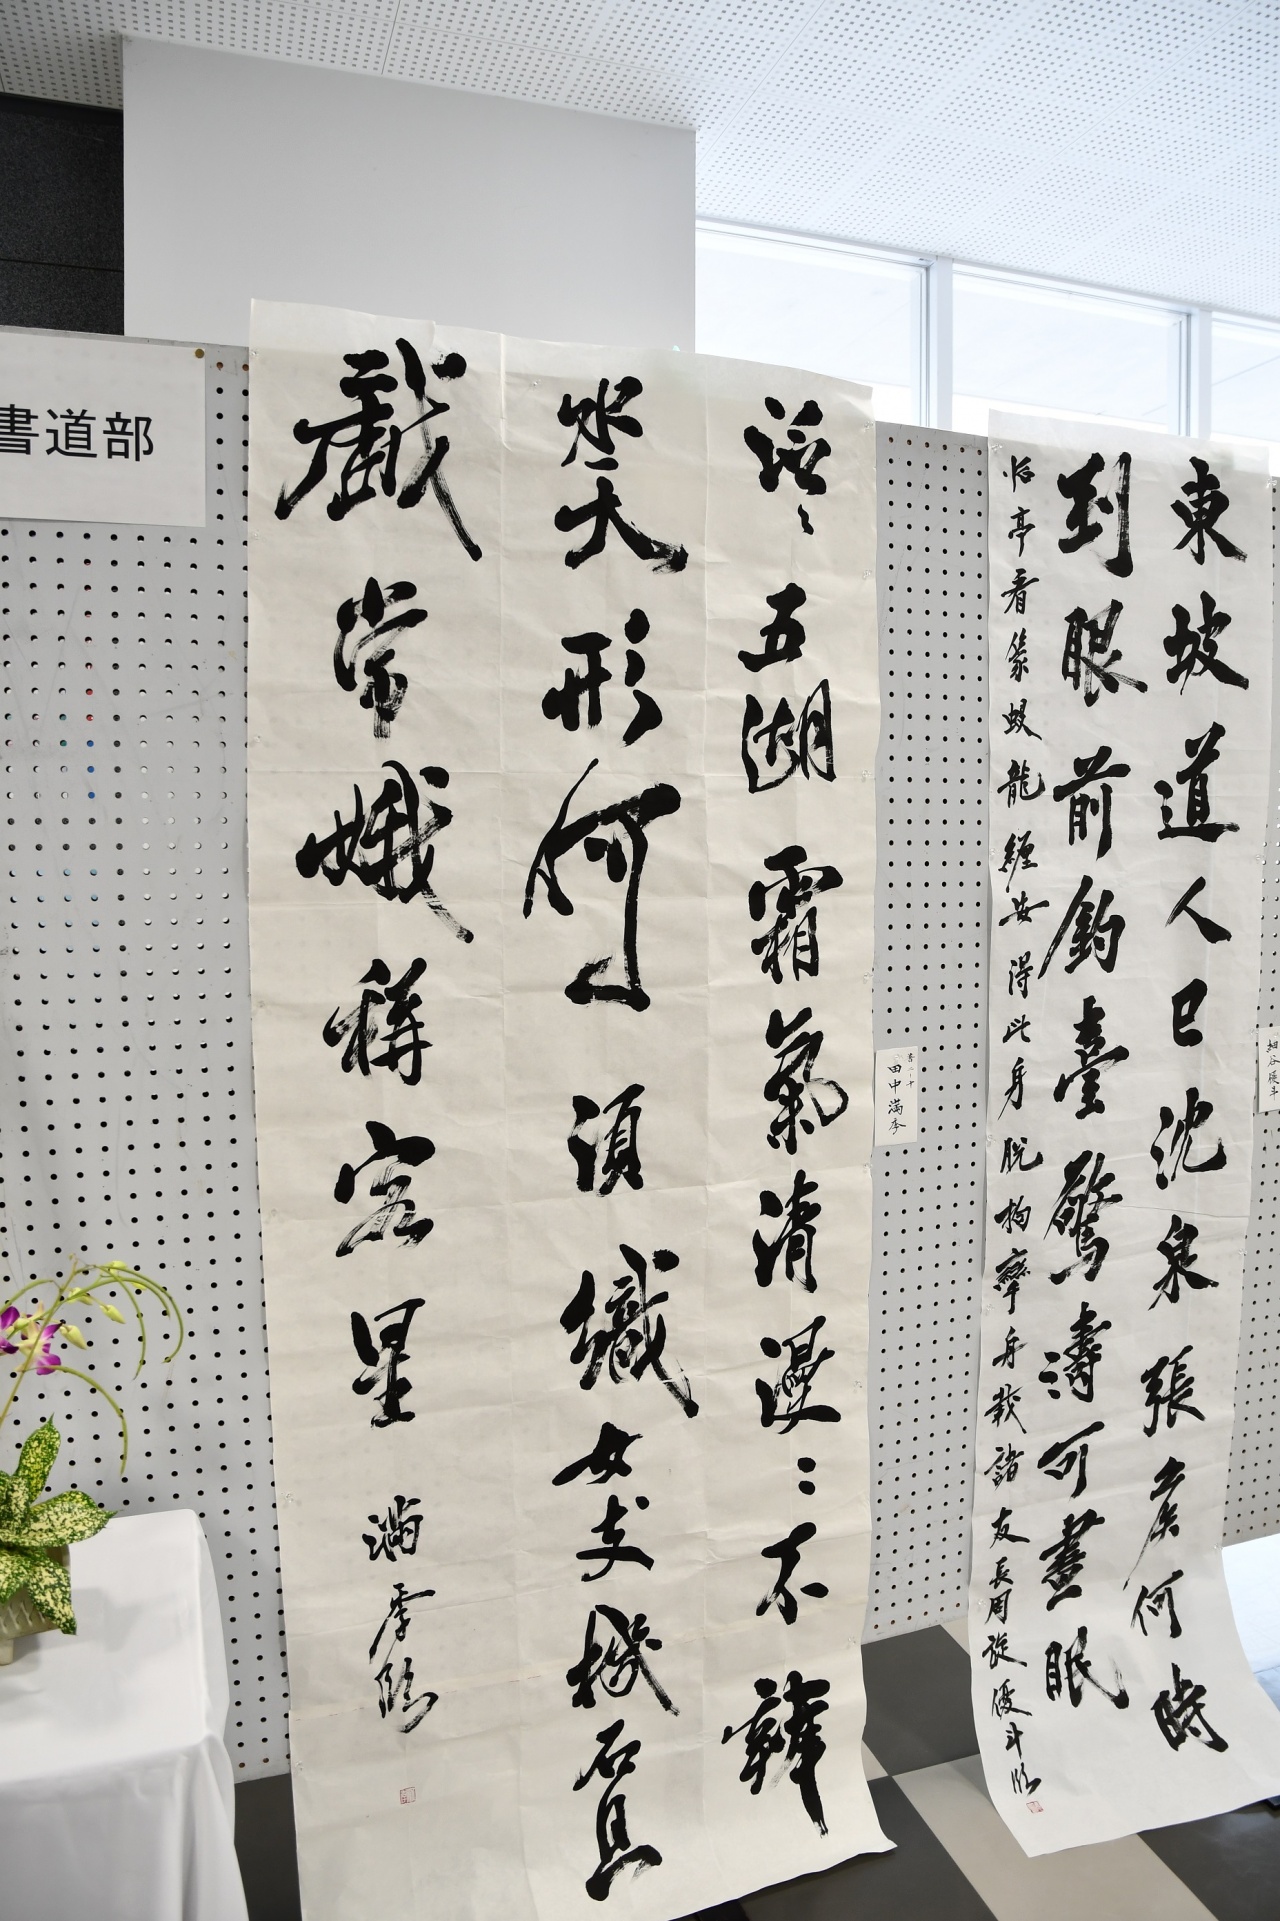 書道部
東坡道人已沈泉張矦何時
到眼前釣臺驚濤可晝眠
怡亭看篆蛟龍纏安得此身脱拘攣舟載諸友長周旋 優斗臨
泛〻五湖霜氣清漫〻不辨
水天形何須織女支機石且
戲常娥稱客星 満季臨
田中満季
細谷優斗